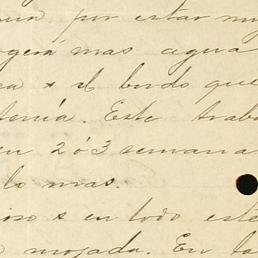 por estar mu
gerá mas agua
x el bordo que
tenía. Este traba
en 2 ó 3 semana
lo mas.
x en todo este
mojada. En la